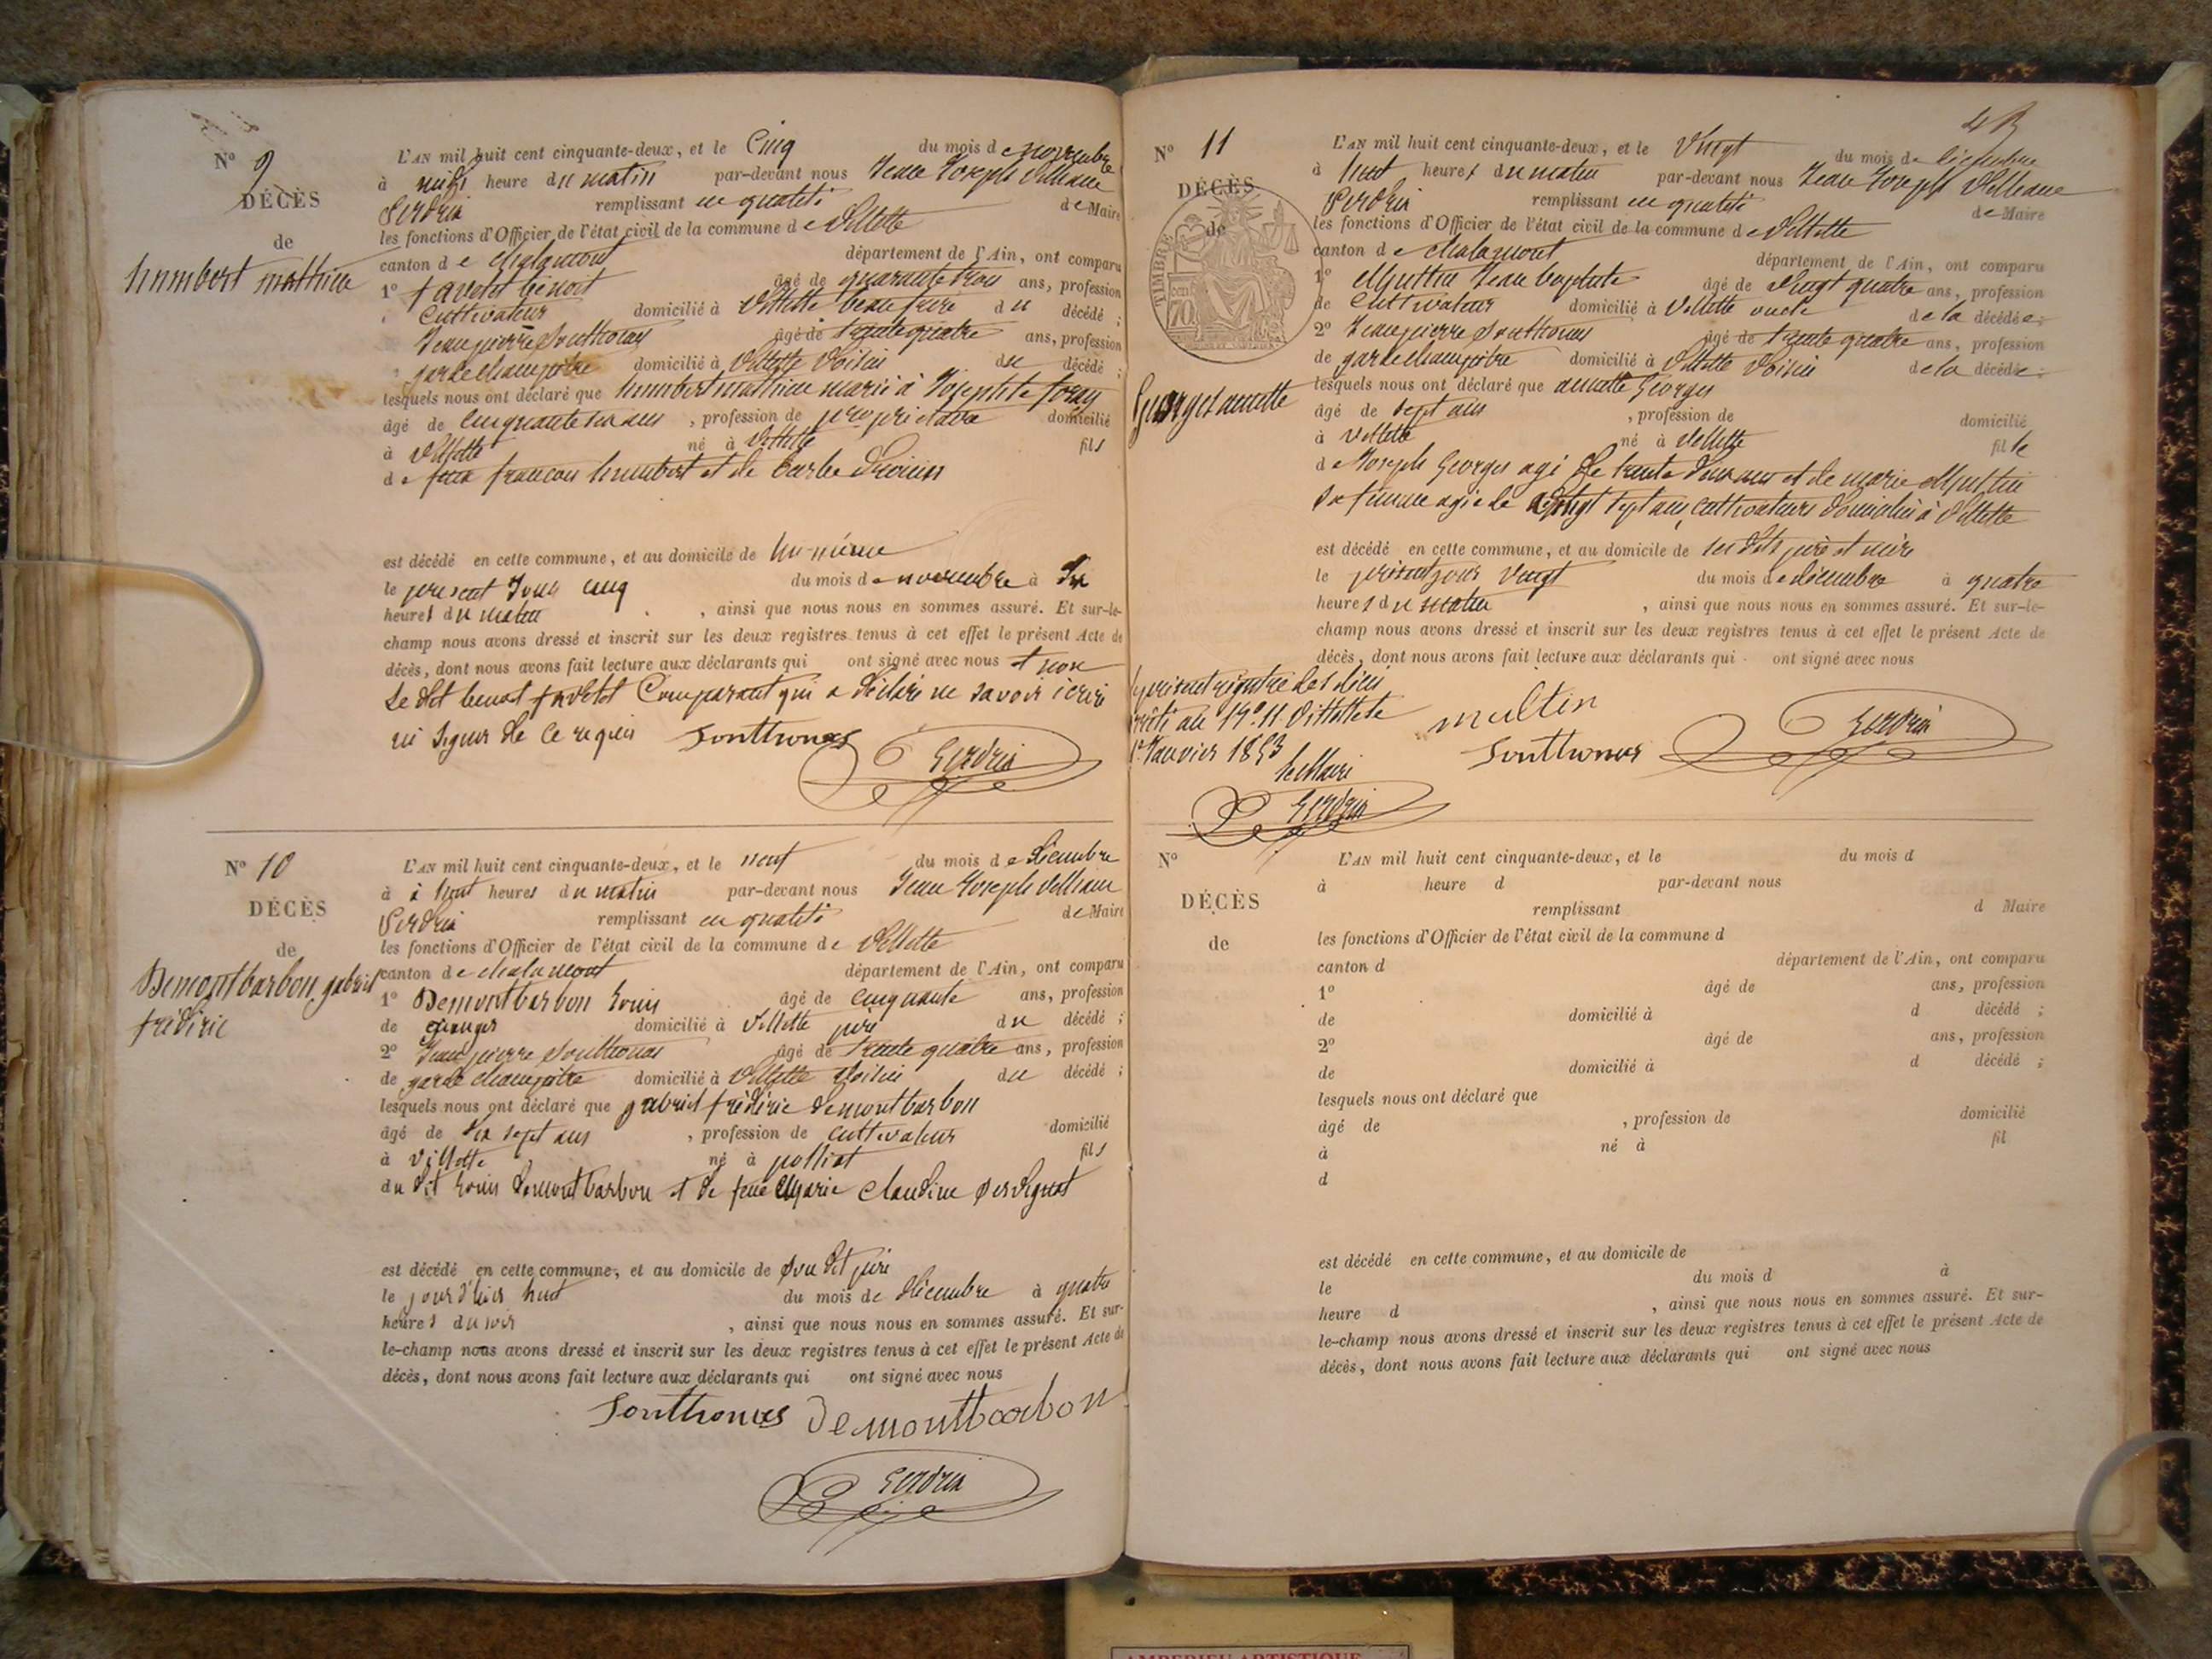 Nº 9
DÉCÈS
de
humbert mathieu
L'AN mil huit cent cinquante-deux, et le Cinq du mois de novembre
à midi heure du matin par-devant nous Jean Joseph
remplissant en qualité de Maire
les fonctions d'Officier de l'état civil de la commune de Villette
canton de chalamont département de l'Ain, ont comparu
1º favetot benoit âgé de quarante trois ans, profession
Cultivateur domicilié à Villette beau frere du décédé ;
Jean pierre Southonas âgé de trente quatre ans, profession
garde champêtre domicilié à Villette voisin du décédé ;
lesquels nous ont déclaré que humbert mathieu marié à Josephte
âgé de cinquante ans, profession de propriétaire domicilié
à Villette né à Villette fils
de feu francois humbert et de
est décédé en cette commune, et au domicile de lui-même
le present Jour cinq du mois de novembre à
heures du matin, ainsi que nous nous en sommes assuré. Et sur-le-
champ nous avons dressé et inscrit sur les deux registres tenus à cet effet le présent Acte de
décès, dont nous avons fait lecture aux déclarants qui ont signé avec nous et non
Le dit benoit favetot Comparant qui a déclaré ne savoir écrire
ni signer de ce requis Southonas
Perdrix
Nº 10
DÉCÈS
de
Demontbarbon gabriel
frédéric
L'AN mil huit cent cinquante-deux, et le neuf du mois de décembre
à à huit heures du matin par-devant nous Jean Joseph
Perdrix remplissant en qualité de Maire
les fonctions d'Officier de l'état civil de la commune de Villette
canton de chalamont département de l'Ain, ont comparu
1º Demontbarbon Louis âgé de cinquante ans, profession
de domicilié à Villette père du décédé ;
2º Jean pierre Southonas âgé de trente quatre ans, profession
de garde champêtre domicilié à Villette voisin du décédé ;
lesquels nous ont déclaré que gabriel frédéric demontbarbon
âgé de dix sept ans, profession de cultivateur domicilié
à Villette né à polliat fils
du dit Louis demontbarbon et de feue Marie Claudine
est décédé en cette commune, et au domicile de son dit père
le jour d'hier huit du mois de décembre à quatre
heures du soir, ainsi que nous nous en sommes assuré. Et sur-
le-champ nous avons dressé et inscrit sur les deux registres tenus à cet effet le présent Acte de
décès, dont nous avons fait lecture aux déclarants qui ont signé avec nous
Southonas Demontbarbon
Perdrix
43
Nº 11
DÉCÈS
de
TIMBRE
70
Georges annette
L'AN mil huit cent cinquante-deux, et le Vingt du mois de décembre
à huit heures du matin par-devant nous Jean Joseph
Perdrix remplissant en qualité de Maire
les fonctions d'Officier de l'état civil de la commune de Villette
canton de chalamont département de l'Ain, ont comparu
1º Multin Jean baptiste âgé de Vingt quatre ans, profession
de Cultivateur domicilié à Villette oncle de la décédée ;
2º Jean pierre Southonas âgé de trente quatre ans, profession
de garde champêtre domicilié à Villette Voisin de la décédée ;
lesquels nous ont déclaré que annette Georges
âgé de sept ans, profession de domicilié
à Villette né à Villette fille
de Joseph Georges agé de trente deux ans et de marie Multin
sa femme agée de vingt sept ans, cultivateurs domiciliés à Villette
est décédé en cette commune, et au domicile de ses dits père et mère
le présent jour Vingt du mois de décembre à quatre
heures du matin, ainsi que nous nous en sommes assuré. Et sur-le-
champ nous avons dressé et inscrit sur les deux registres tenus à cet effet le présent Acte de
décès, dont nous avons fait lecture aux déclarants qui ont signé avec nous
le présent registre des décès
arrêté au Nº 11. Villette le
1er Janvier 1853
le Maire
Perdrix
multin
Southonas
Perdrix
Nº
DÉCÈS
de
L'AN mil huit cent cinquante-deux, et le du mois d
à heure d par-devant nous
remplissant d Maire
les fonctions d'Officier de l'état civil de la commune d
canton d département de l'Ain, ont comparu
1º âgé de ans, profession
de domicilié à d décédé ;
2º âgé de ans, profession
de domicilié à d décédé ;
lesquels nous ont déclaré que
âgé de , profession de domicilié
à né à fil
d
est décédé en cette commune, et au domicile de
le du mois d à
heure d , ainsi que nous nous en sommes assuré. Et sur-
le-champ nous avons dressé et inscrit sur les deux registres tenus à cet effet le présent Acte de
décès, dont nous avons fait lecture aux déclarants qui ont signé avec nous
AMBERIEU ARTISTIQUE